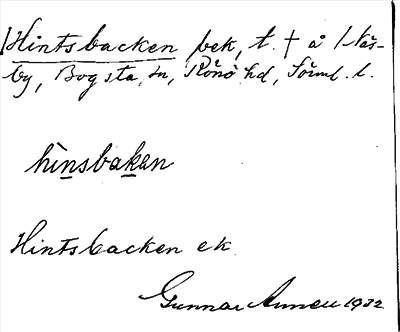 Hintsbacken bek, t. † å /Näs-
by, Bogsta, sn, Rönö hd, Sörml. l.
hìnsbaken
Hintsbacken ek.
Gunnar 1932